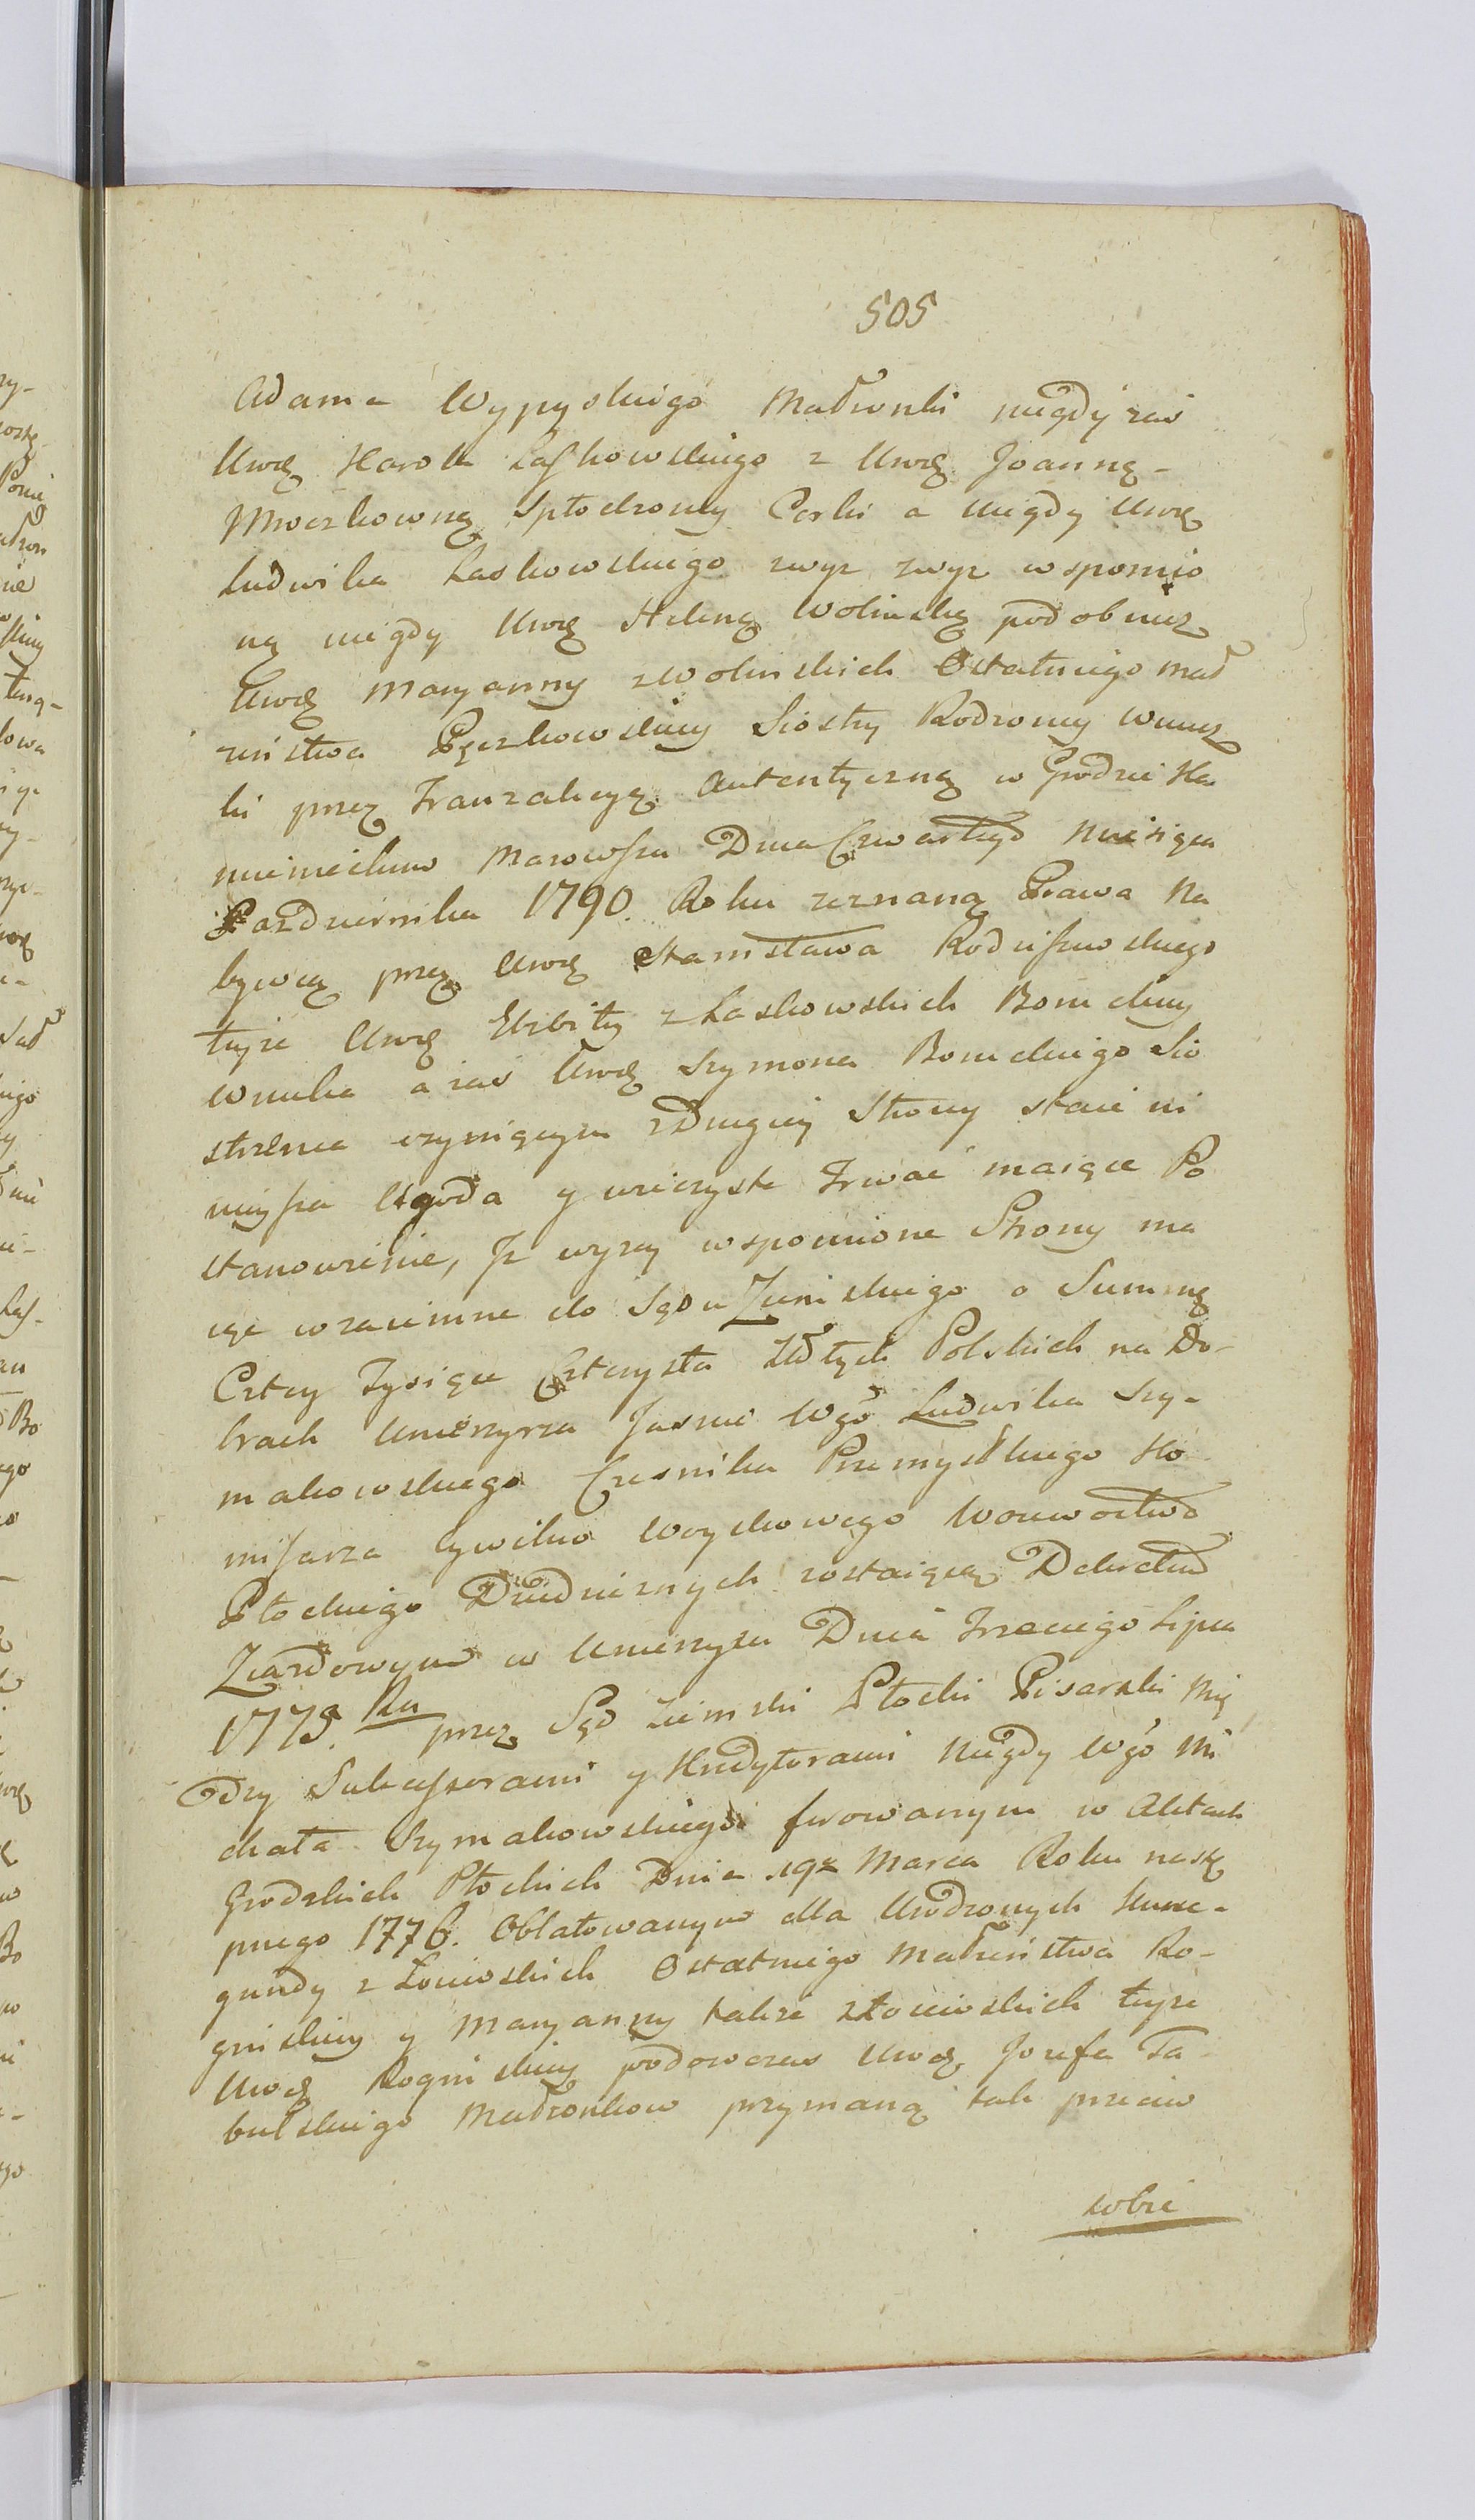 505
Adama Wypyskiego Małżonki niegdy zaś
Urodz Karola Laskowskiego z Urodz Joanną-
Mroczkowną Spłodzoney Corki a niegdy Urodz
Ludwika Laskowskiego zwyz zwyz wspomio
ną niegdy Urodz Heleną Wolinską podobnież
Urodz Maryanny z Wolinskich Ostatniego Mał
zeństwa Pęczkowskiey Siostry Rodzoney Wnucz
ki przez Tranzakcyą Autentyczną w Grodzie Ka
mienieckim Mazowsza Dnia Czwartego Miesiąca
Października 1790. Roku zeznaną Prawa Na
bywcą przez Urodz Stanisława Kodziszewskiego
teyże Urodz Elzbity z Laskowskich Bonieckiey
Wnuka a zaś Urodz Szymona Bonieckiego Sio
strzenca czyniącym z Drugiey Strony staie ni
nieysza Ugoda y wieczyste Trwać maiące Po
stanowienie, Jz wyzey wspomnione Strony ma
iąc wzaiemne do Sądu Ziemskiego o Summę
Cztery Tysiące Cztterysta Złłtych Polskich na Do-
brach Umienzyrza Jasnie Wgo Ludwika Szy-
makowskiego Czesnika Przemyslkiego Ko
misarza Cywilno Woyskowego Woiewodztwa
Płockiego Dziedzicznych zostaiącą Dekretem
Ziazdowym w Dnia Trzeciego Lipca
1775. Ru przez Sąd Ziemski Płocki Pisarski Mię
dzy Sukcessorami y Kredytorami Niegdy Wgo Mi
chała Szymakowskiego ferowanym w Aktach
Grodzkich Płockich Dnia 19z Marca Roku nastę
pnego 1776. Oblatowanym dla Urodzonych Kune-
gundy z Łoniewskich Ostatniego Małzeństwa Ro-
gniskiey y Maryanny także teyże
Urodz Rogniskiey podowczas Urodz Jozefa Ta-
bulskiego Małżonkow przyznaną tak przeciw
sobie